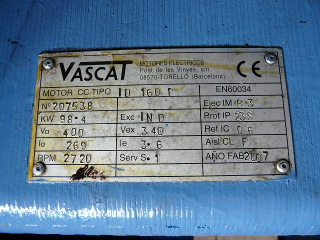 VASCAT
MOTORES ELECTRICOS
Pont de les Vinyes, s/n
08570-TORELLO (Barcelona)
CE
MOTOR CC TIPO ID 160 EN60034
Nº 207538 Ejec IM B 3
KW 98·4 Exc IND Prot IP
Va 400 Vex 340 Ref IC 06
Ia 269 Ie 3·6 Aisl CL F
RPM 2720 Serv S·1 AÑO FAB